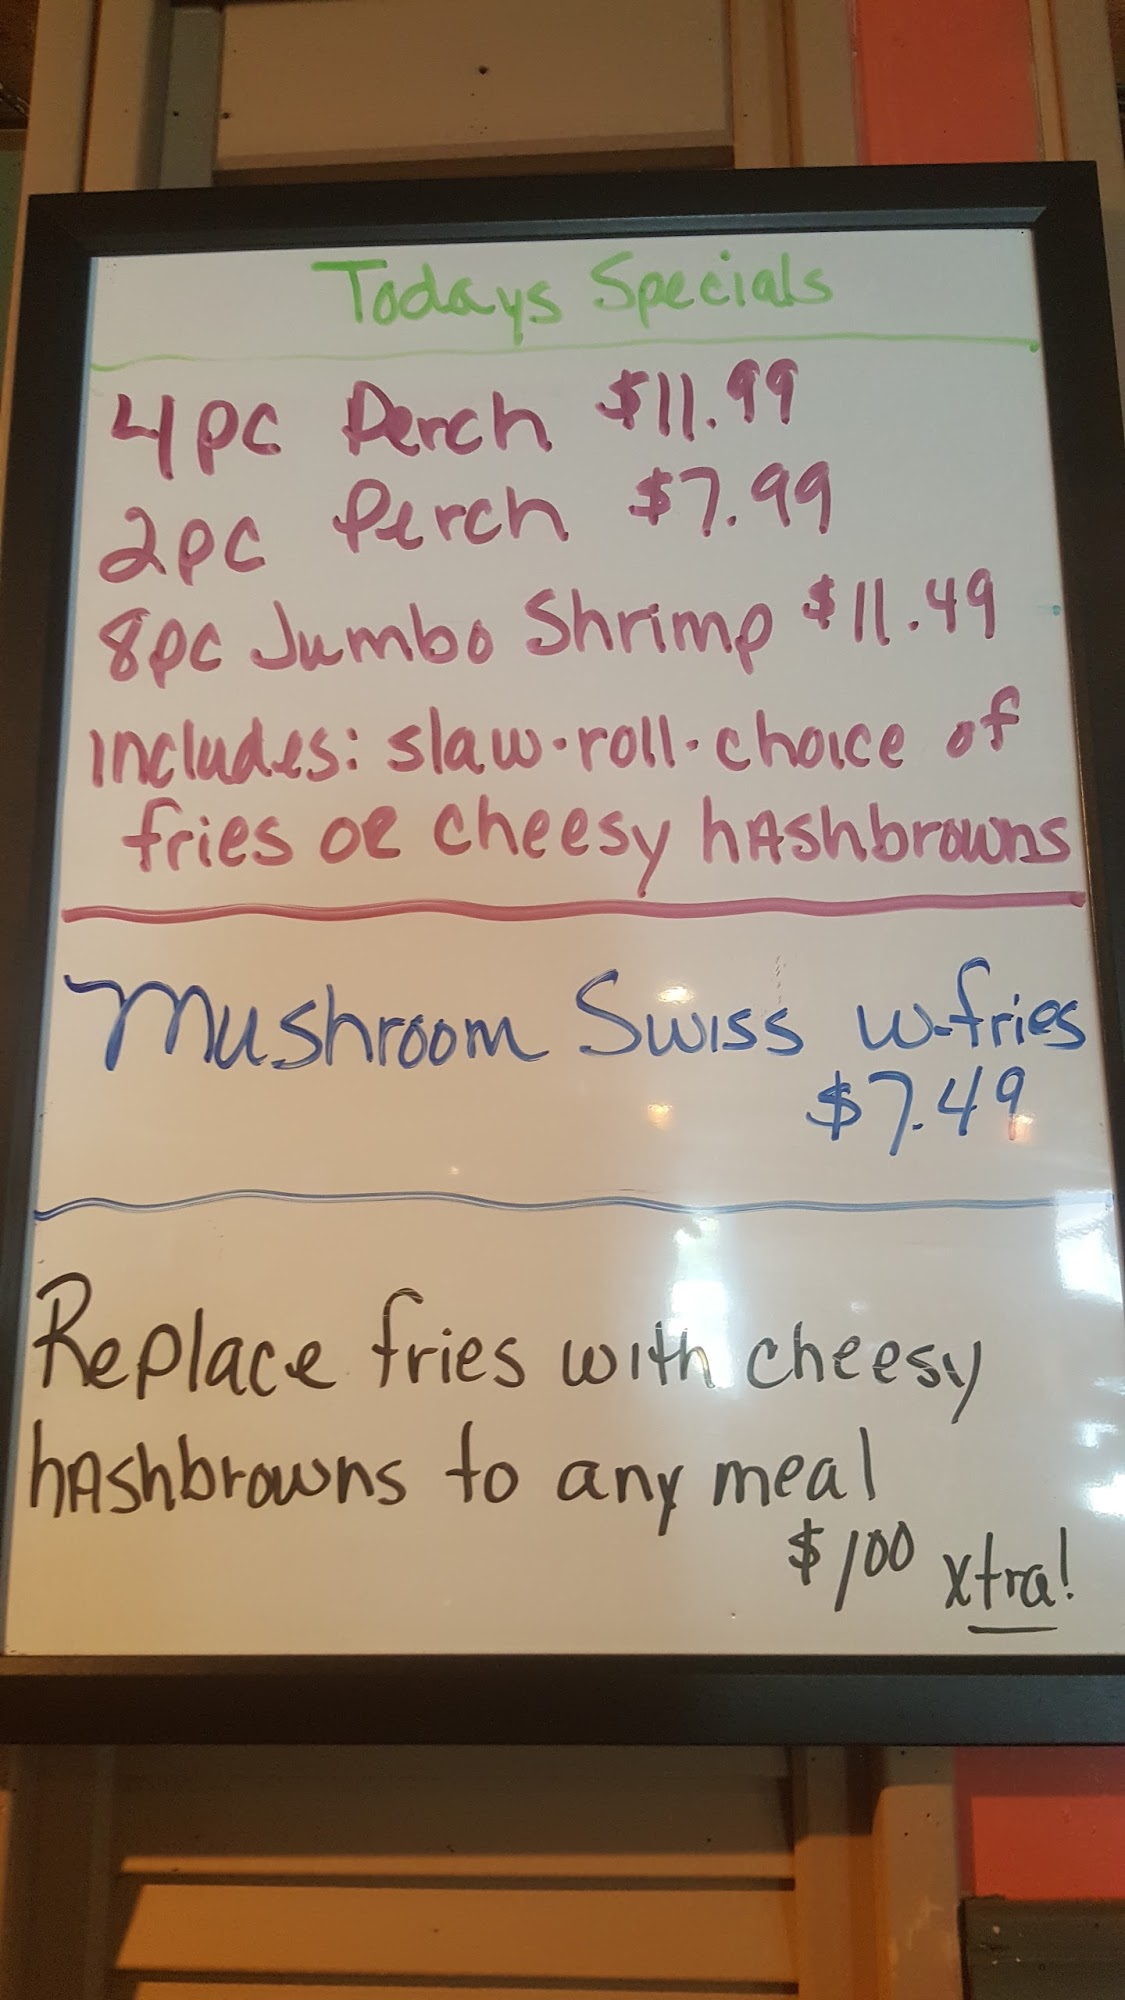 Todays Specials
4pc Perch $11.99
2pc Perch $7.99
8pc Jumbo Shrimp $11.49
includes: slaw·roll·choice of
fries or cheesy hAshbrowns
Mushroom Swiss w-fries
$7.49
Replace fries with cheesy
hAshbrowns to any meal
$1.00 xtra!